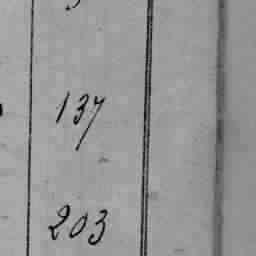 137
203